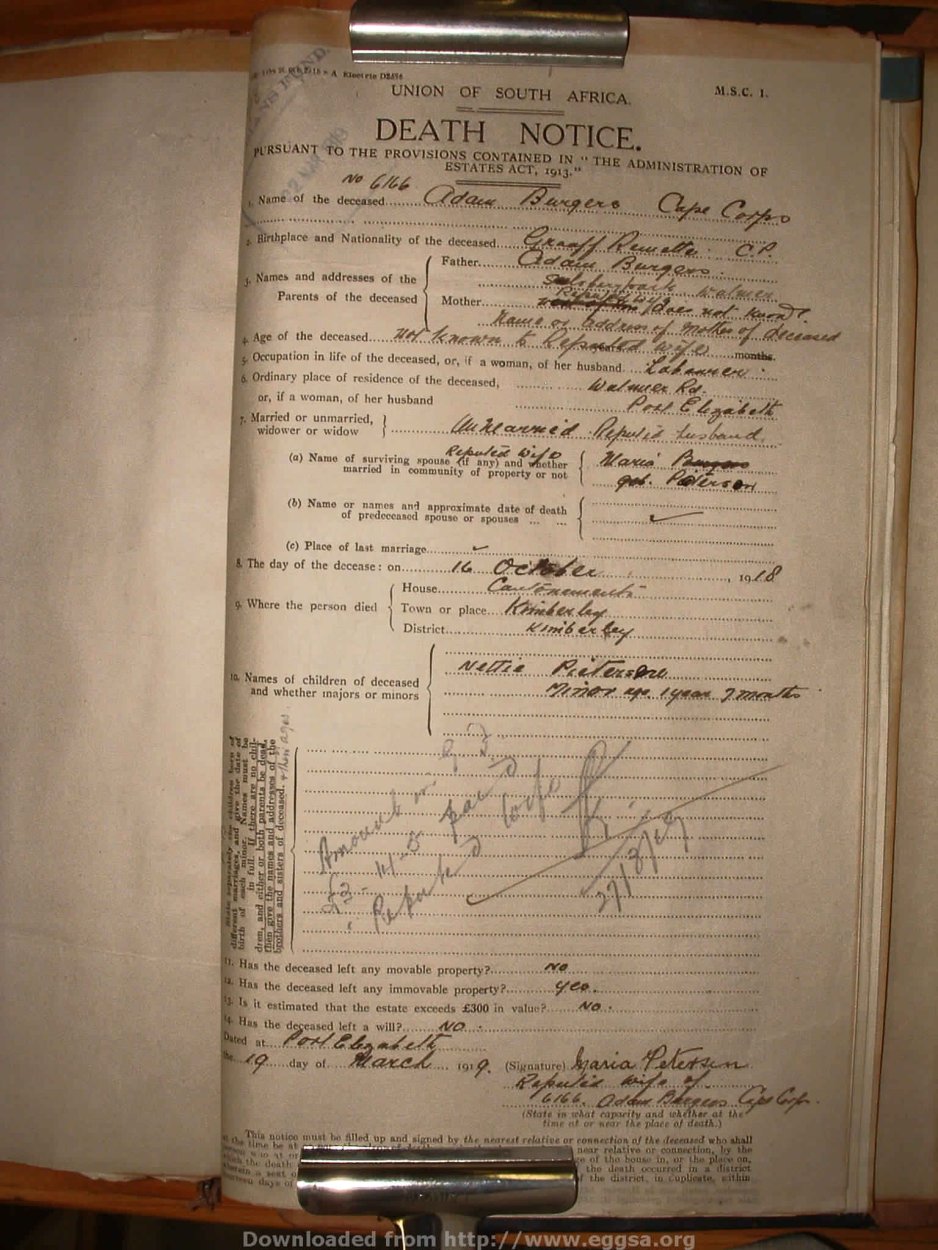 UNION OF SOUTH AFRICA.
M.S.C. 1.
DEATH NOTICE.
PURSUANT TO THE PROVISIONS CONTAINED IN "THE ADMINISTRATION OF
ESTATES ACT, 1913."
No 6166
1. Name of the deceased Adam Burgers Cape Corps
2. Birthplace and Nationality of the deceased Graaff Reinette. C.P.
3. Names and addresses of the Parents of the deceased
Father Adam Burgers
Walmer
Mother Reputed wife does not know
name or address of mother of deceased
4. Age of the deceased not known to Reputed wife months.
5. Occupation in life of the deceased, or, if a woman, of her husband Labourer
6. Ordinary place of residence of the deceased, Walmer Rd.
or, if a woman, of her husband Port Elizabeth
7. Married or unmarried, widower or widow } Unmarried Reputed husband
Reputed Wife
(a) Name of surviving spouse (if any) and whether married in community of property or not { Maria Burgers
geb. Peterson
(b) Name or names and approximate date of death of predeceased spouse or spouses ... ...
(c) Place of last marriage
8. The day of the decease: on 16 October, 1918
9. Where the person died
House Cantonements
Town or place Kimberley
District Kimberley
10. Names of children of deceased and whether majors or minors
Nettie Pieterson
Minor age 1 year 7 months
State separately the children born of different marriages, and give the date of birth of each minor. Names must be in full. If there are no children, and either or both parents be dead, then give the names and addresses of the brothers and sisters of deceased. & their ages.
Amount in G F
£3-14-5 paid
Reported wife
27/3/19
11. Has the deceased left any movable property? No
12. Has the deceased left any immovable property? yes.
13. Is it estimated that the estate exceeds £300 in value? No.
14. Has the deceased left a will? No.
Dated at Port Elizabeth
the 19 day of March 1919. (Signature) Maria Petersen
Reputed wife of
6166. Adam Burgers Cape Corps.
(State in what capacity and whether at the
time of or near the place of death.)
This notice must be filled up and signed by the nearest relative or connection of the deceased who shall
near relative or connection, by the
of the house in, or the place on,
the death occurred in a district
of the district, in duplicate, within
Downloaded from http://www.eggsa.org